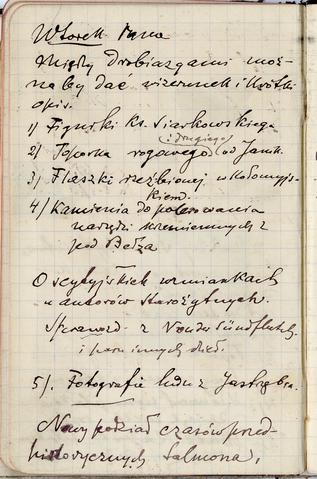 Wtorek rano
Między drobiazgami moż-
na by dać wizerunek i krótki
opis.
1) Figurki ks. Siarkowskiego
i drugiego
2) Toporka rogowego od Janik.
3) Flaszki rzeźbionej w Kołomyjs-
kiem.
4) Kamienia do polerowania
narzędzi krzemiennych z
pod Bełza
O scytyjskich wzmiankach
u autorów starożytnych.
Sprawozd. z
i paru innych dzieł.
5). Fotografie z Jastrzębca.
Nowy podział czasów przed-
historycznych Salmona.